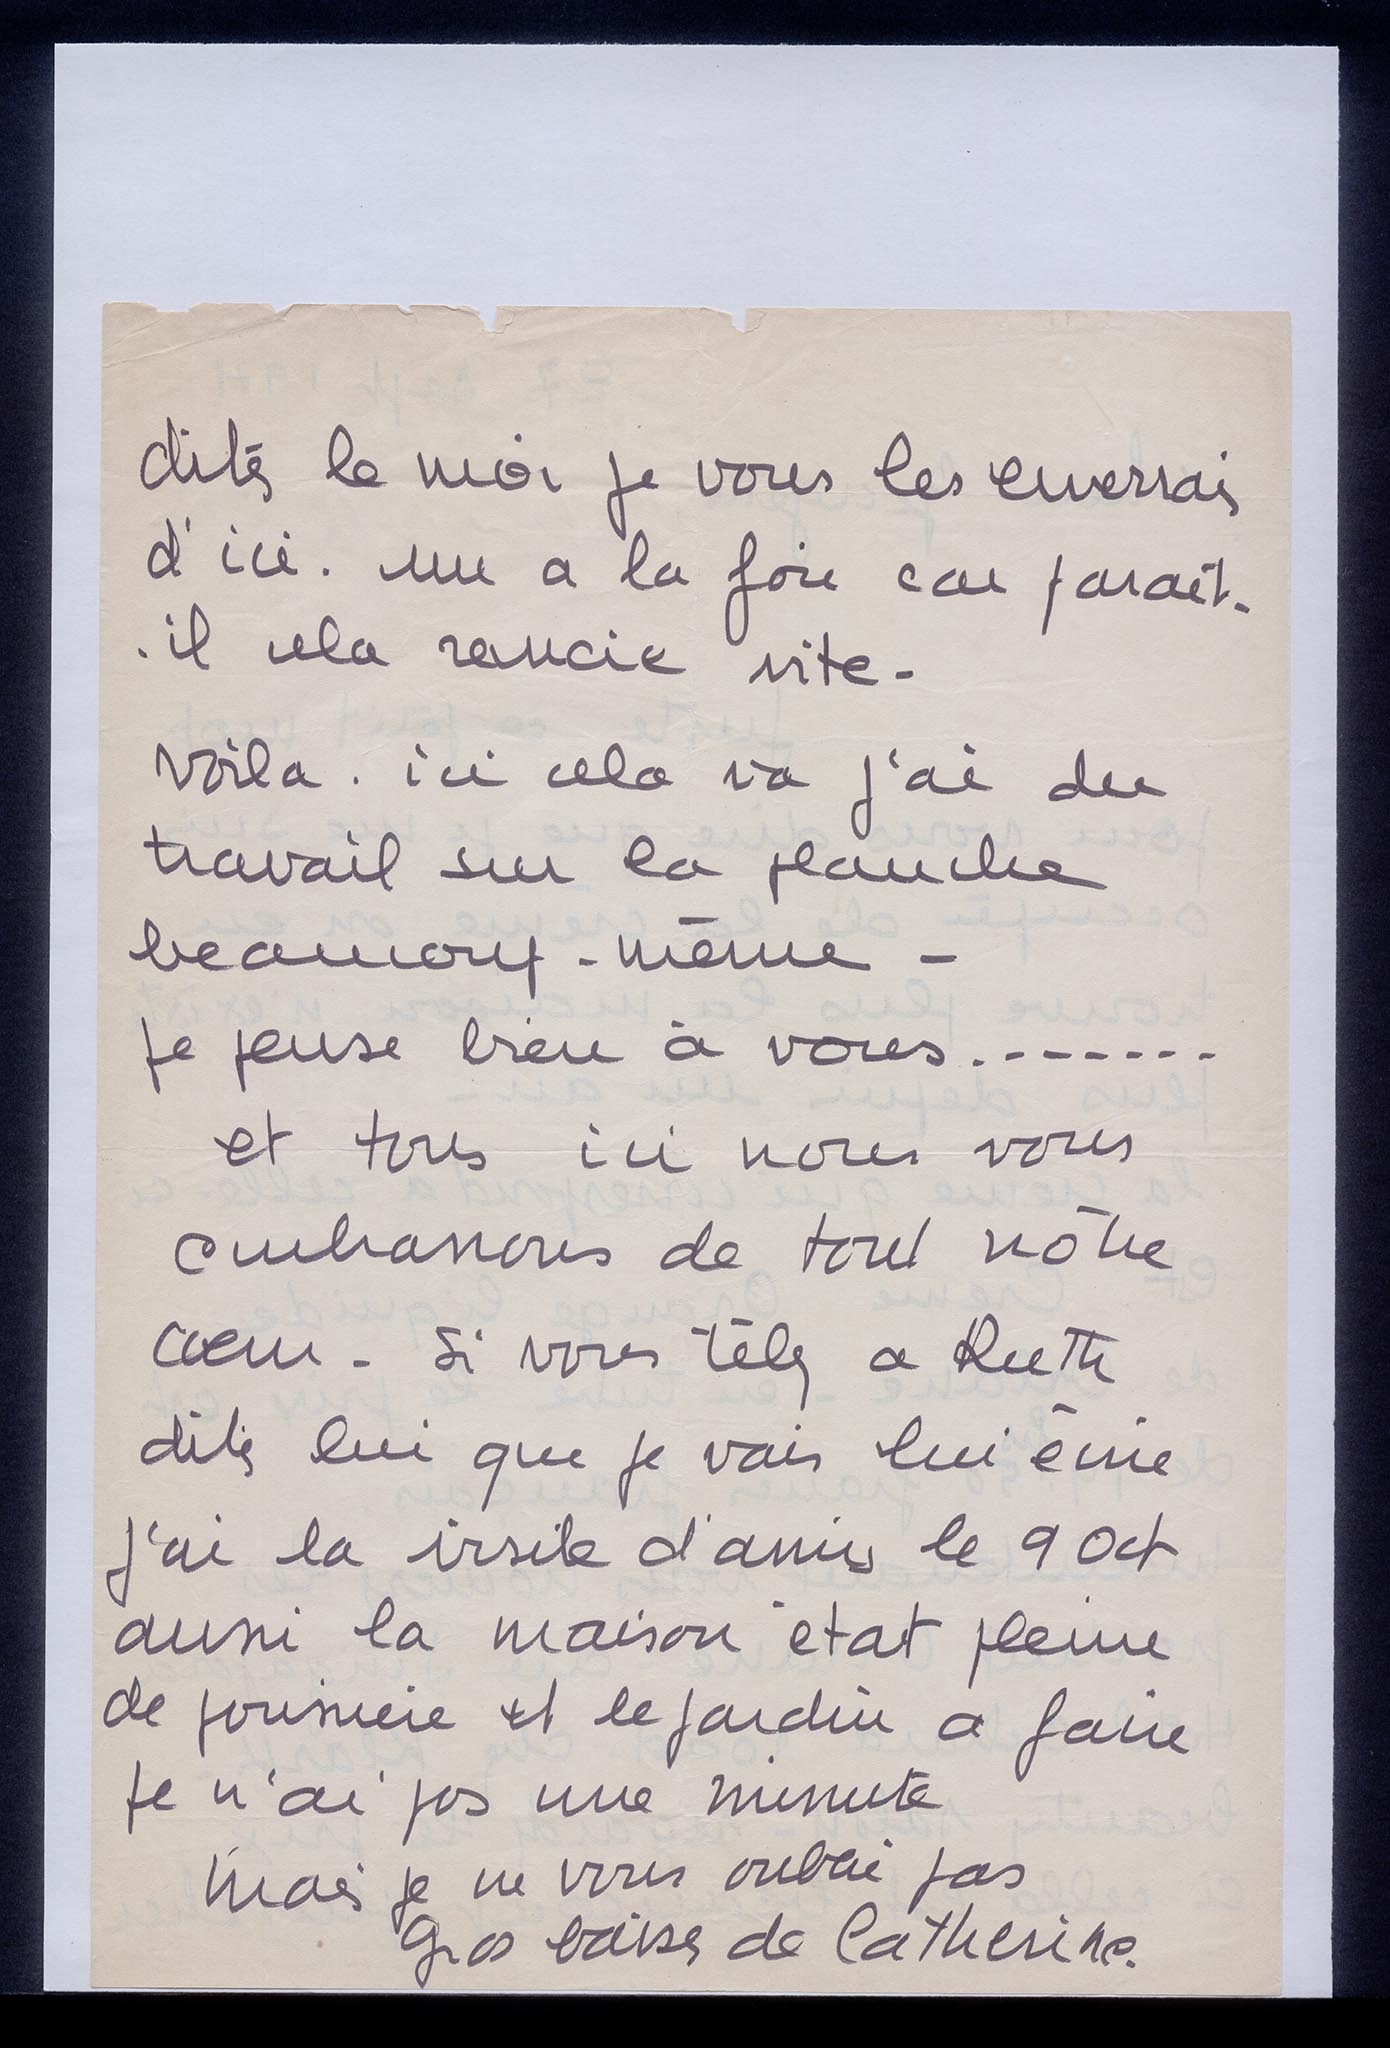 dités le moi je vous les enverrais
d'ici. une a la fois car parait-
-il cela rancie vite-
Voila. ici cela va j'ai du
travail sur la planche
beaucoup-même -
je pense bien à vous........
et tous ici nous vous
embrassons de tout nôtre
cœur - Si vous télé a Ruth
dités lui que je vais lui écrire
j'ai la visite d'amis le 9 Oct
aussi la maison était pleine
de poussière et le jardin a faire
je n'ai pas une minute
Mais je ne vous oublie pas
Gros baisés de Catherine.